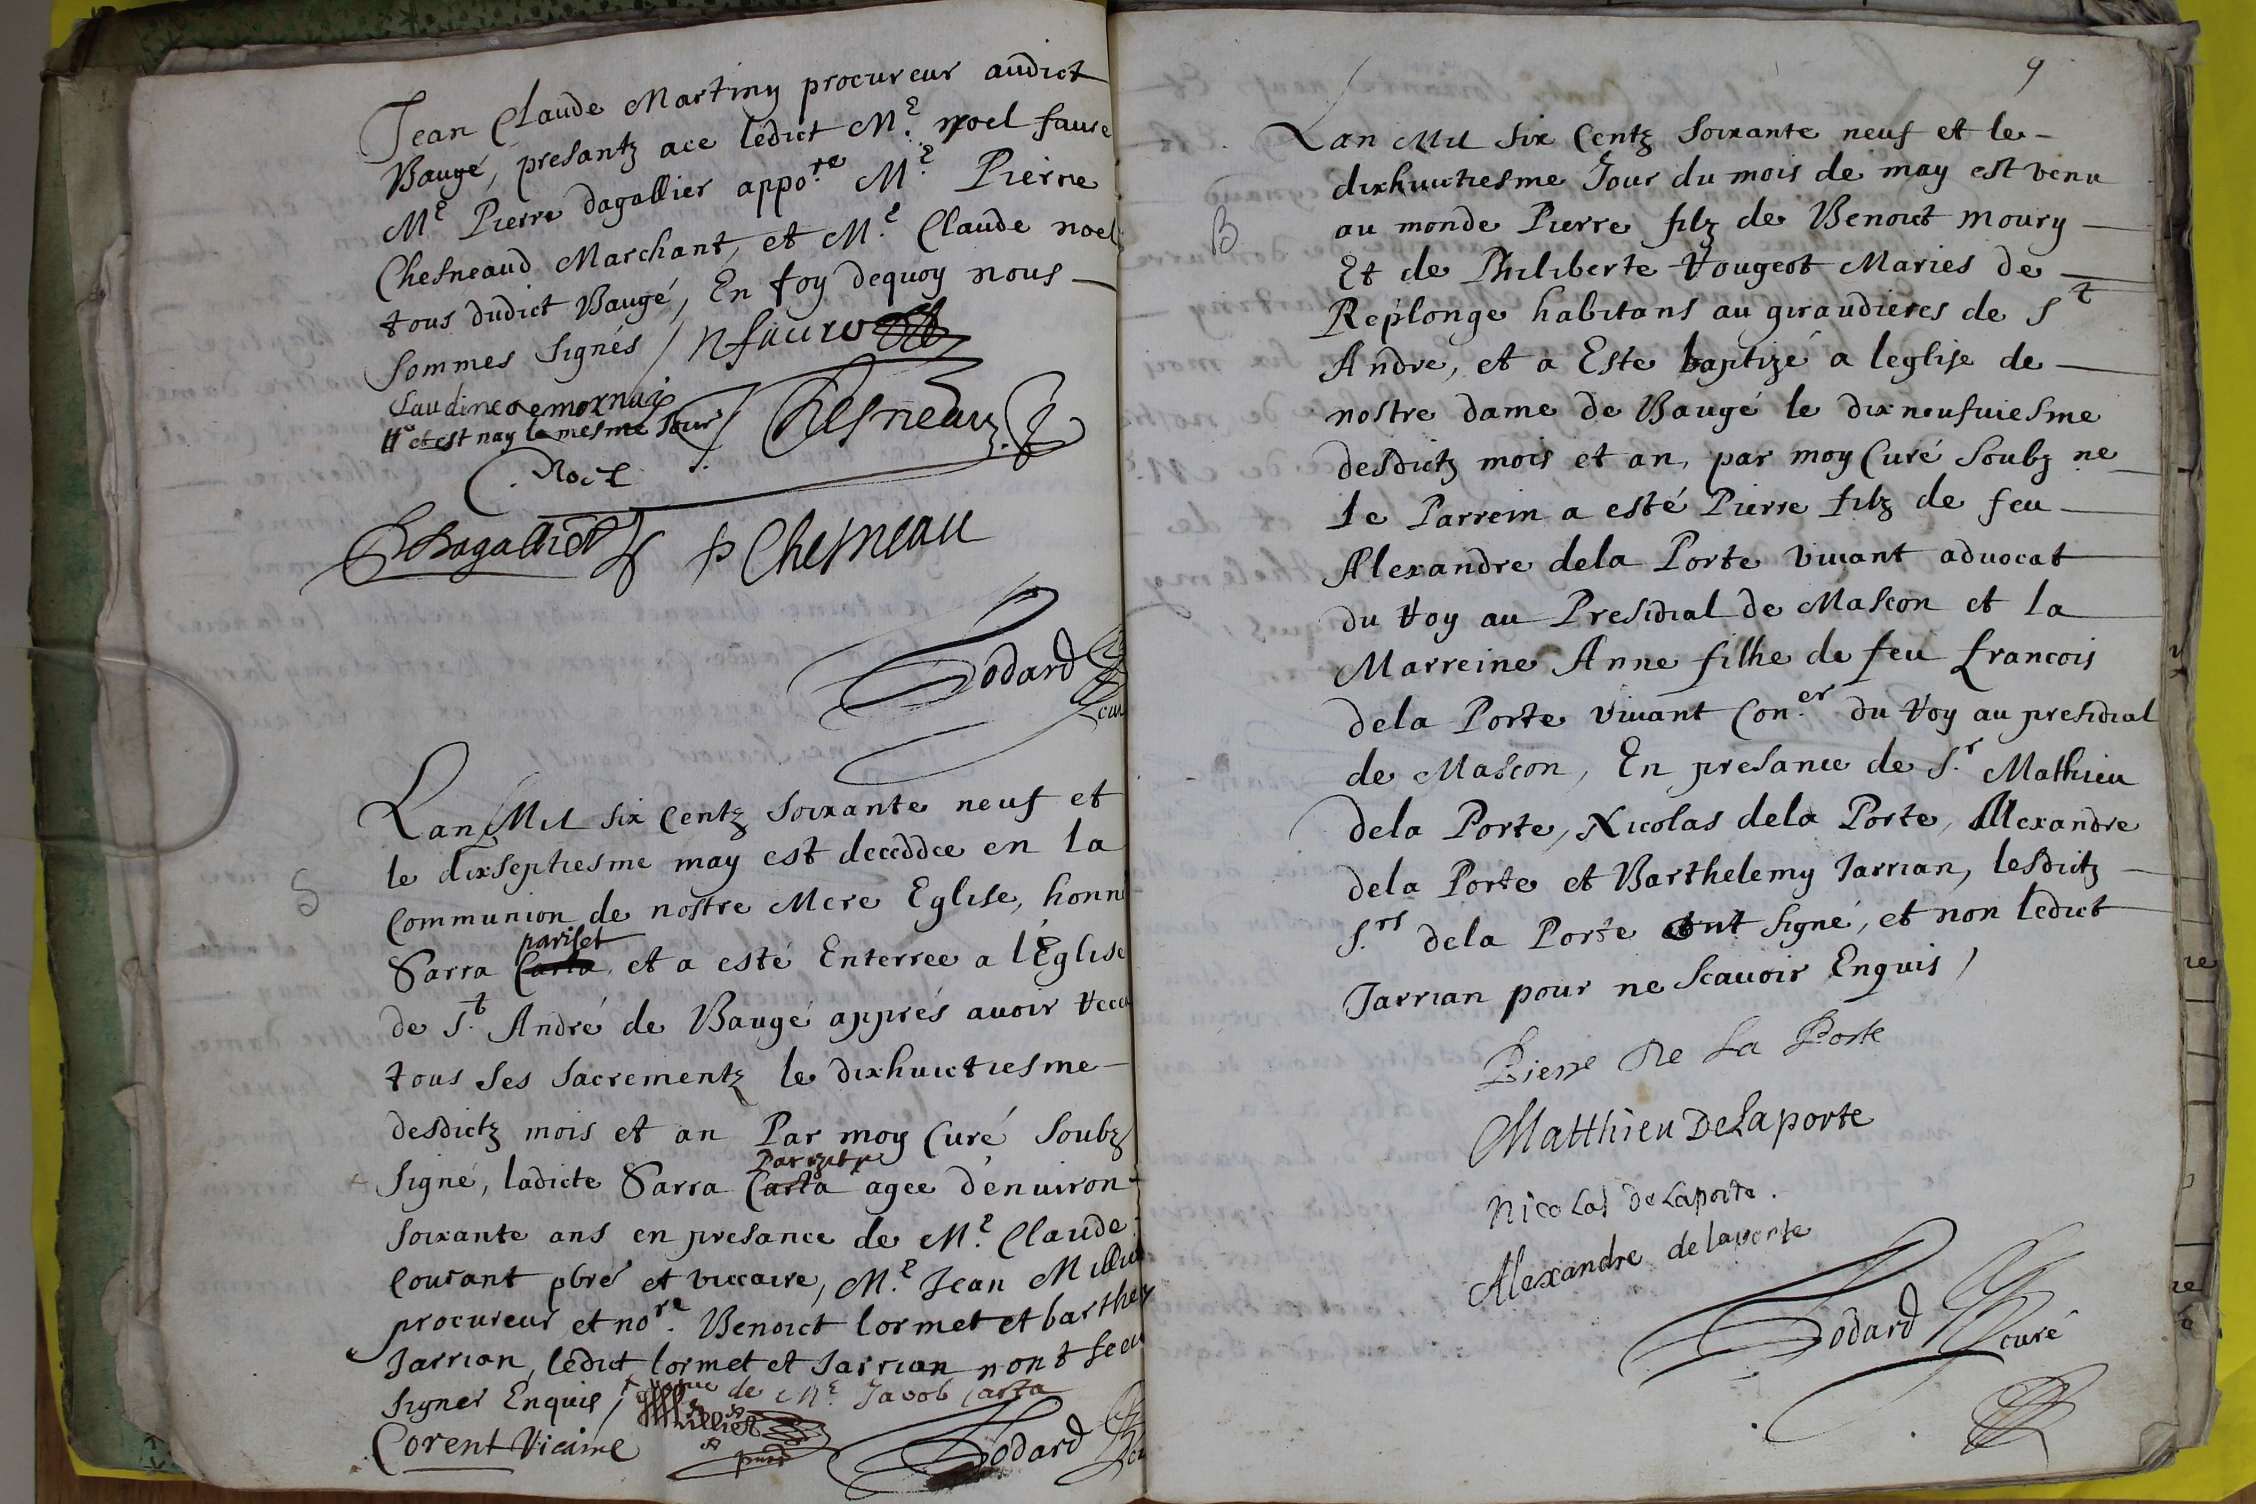 Jean Claude Martiny procureur audict
Baugé, presantz ace ledict M.e noel faure
M.e Pierre dagallier appo.re M.e Pierre
Chesneaud Marchant, et M.e Claude noel
tous dudict Baugé, En foy dequoy nous
sommes signés / Nfaure
Claudine de mornaix
et est nay le mesme Jour
Chesneau
Noel
Dagallier P Chesneau
Godard
cur
Lan Mil six Centz soixante neuf et
le dixseptiesme may est deceddee en la
S
Communion de nostre Mere Eglise, honn
pariset
Sarra Carta, et a esté Enterree a l'Eglise
de S.t André de Baugé apprés auoir receu
tous ses sacrementz le dixhuictiesme
desdictz mois et an Par moy Curé soubz
Parizet
signé, ladicte Sarra Carta agee d'enuiron
soixante ans en presance de M.e Claude
Courant pbre et viccaire, M.e Jean Millie
procureur et no.re Benoict lormet et barthe
Jarrian, ledict lormet et Jarrian nont sceu
signer Enquis / de M.e Jacob Carta
Corent Vicaire
Godard
9
Lan Mil six Centz soixante neuf et le
dixhuictiesme Jour du mois de may est venu
B
au monde Pierre filz de Benoict moury
Et de Philiberte Vougeot Maries de
Replonge habitans au giraudieres de S.t
André, et a Este baptizé a leglise de
nostre dame de Baugé le dixneufuiesme
desdictz mois et an, par moy Curé soubz ne
le Parrein a esté Pierre filz de feu
Alexandre dela Porte viuant aduocat
du Roy au Presidial de Mascon et la
Marreine Anne filhe de feu francois
dela Porte viuant Con.er du Roy au presidial
de Mascon, En presance de S.r Mathieu
dela Porte, Nicolas dela Porte, Allexandre
dela Porte et Barthelemy Jarrian, lesdictz
S.rs dela Porte ont signé, et non ledict
Jarrian pour ne scauoir Enquis /
Pierre De La Porte
Matthieu DeLaporte
Nicolas deLaporte.
Alexandre delaporte
Godard
curé